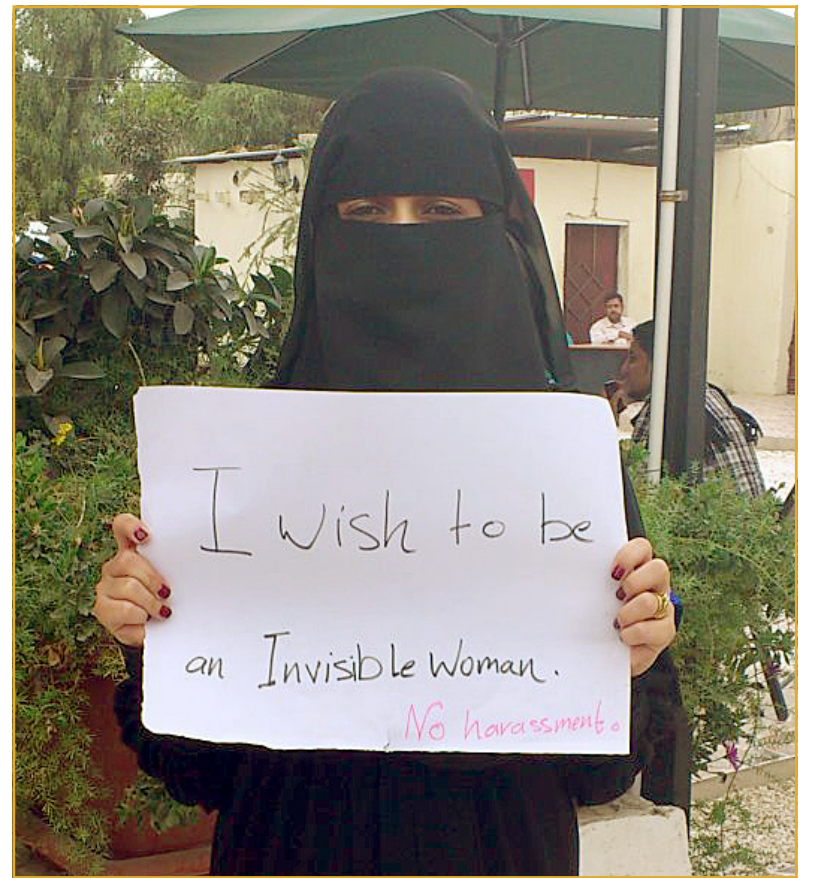 I wish to be
an Invisible Woman.
No harassment.